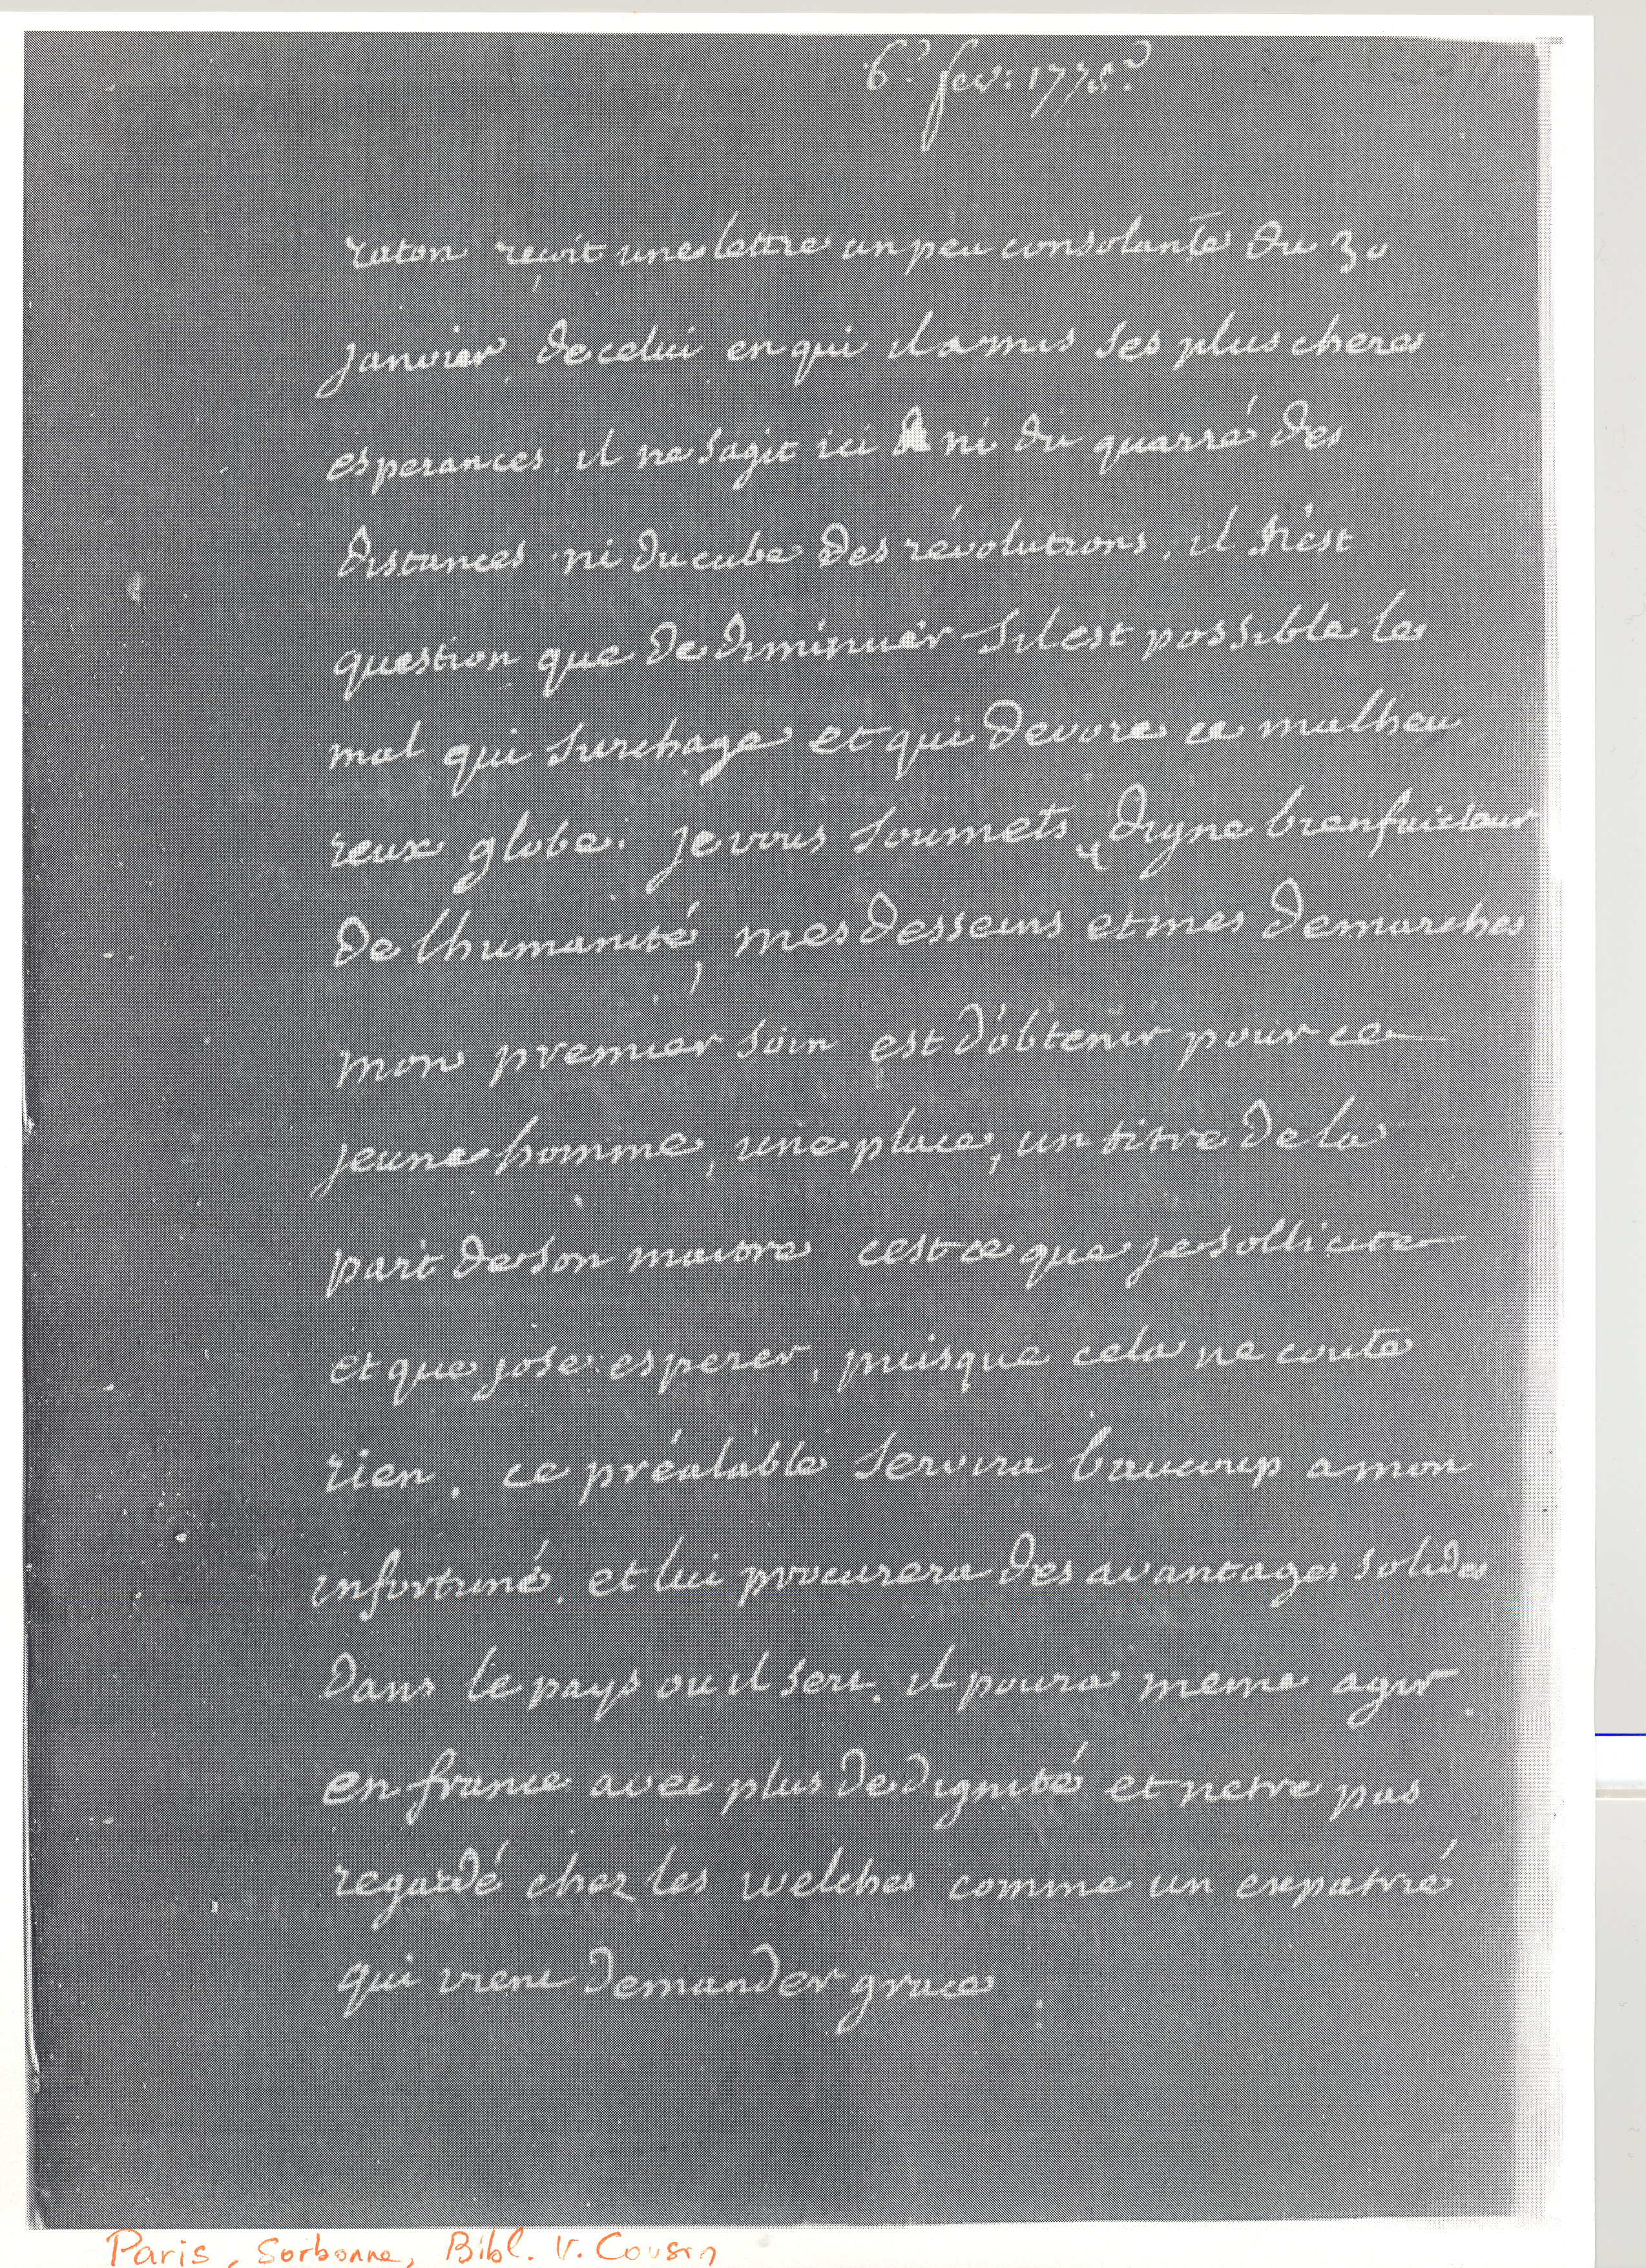 6e fevr 1775.
raton reçoit une lettre un peu consolante du 30
janvier, de celui en qui il a mis ses plus cheres
esperances. il ne sagit ici ni du quarré des
distances ni du cube des révolutions. il n'est
question que de diminuer sil est possible le
mal qui surchage et qui devore ce malheu
reux globe. je vous soumets, digne bienfaicteur
de lhumanité, mes desseins et mes demarches
mon premier soin est d'obtenir pour ce
jeune homme, une place, un titre de la
part de son maitre cest ce que je sollicite
et que jose esperer, puisque cela ne coute
rien. ce préalable servira baucoup a mon
infortuné, et lui procurera des avantages solides
dans le pays ou il sert. il poura meme agir
en france avec plus de dignité et netre pas
regardé chez les welches comme un expatrié
qui vient demander grace.
Paris, Sorbonne, Bibl. V. Cousin